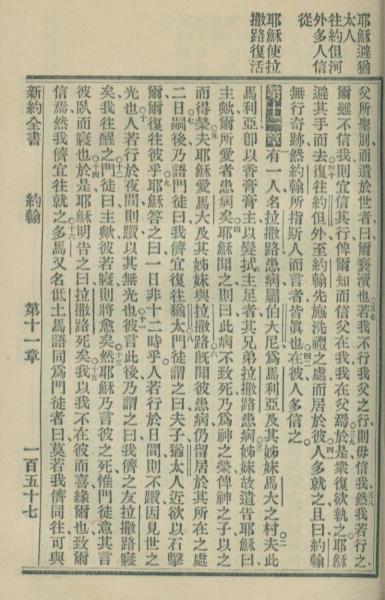 耶穌遊猶
太人
往約但河
外多人信
從
耶穌使拉
撒路復活
父所聖別而遣於世者曰爾褻瀆也若我不行我父之行則毋信我然我若行之
爾雖不信我則宜信其行俾爾知而信父在我我在父焉於是眾復欲執之耶穌
遊其手而去復往約但外至約翰先施洗禮之處而居於彼人多就之且曰約翰
無行奇跡然約翰所指斯人而言者皆真也在彼人多信之
第十一章 有一人名拉撒路患病屬伯大尼為馬利亞及其姊妹馬大之村夫此
馬利亞卽以香膏膏主以髮拭主足者其兄弟拉撒路患病姊妹故遣告耶穌曰
主歟爾所愛者患病矣耶穌聞之則曰此病不致死乃為神之榮俾神之子以之
而得榮夫耶穌愛馬大及其姊妹與拉撒路旣聞彼患病仍留居於其所在之處
二日嗣後乃語門徒曰我儕宜復往猶太門徒謂之曰夫子猶太人近欲以石擊
爾爾復往彼乎耶穌答之曰一日非十二時乎人若行於日間則不躓因見世之
光也人若行於夜間則躓以其無光也彼言此後乃謂之曰我儕之友拉撒路寢
矣我往醒之門徒曰主歟彼若寢則將愈矣然耶穌乃言彼之死惟門徒意其言
彼臥而寢也於是耶穌明告之曰拉撒路死矣我以我不在彼而喜緣爾也致爾
信焉然我儕宜往就之多馬又名低土馬語同為門徒者曰莫若我儕同往可與
新約全書 約翰 第十一章 一百五十七